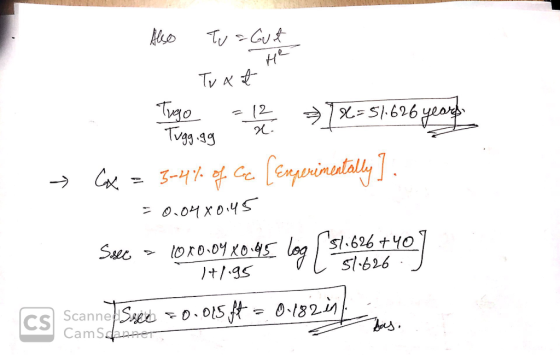 Also Tv = Cvt / H²
Tv ∝ t
Tv90 / Tv99.99 = 12 / x. ⇒ x = 51.626 years.
→ Cα = 3-4% of Cc [Experimentally].
= 0.04 x 0.45
Ssec = 10x0.04x0.45 / 1+1.95 log [51.626+40 / 51.626.]
Ssec = 0.015 ft = 0.182 in.
Ans.
CS Scanned with
CamScanner